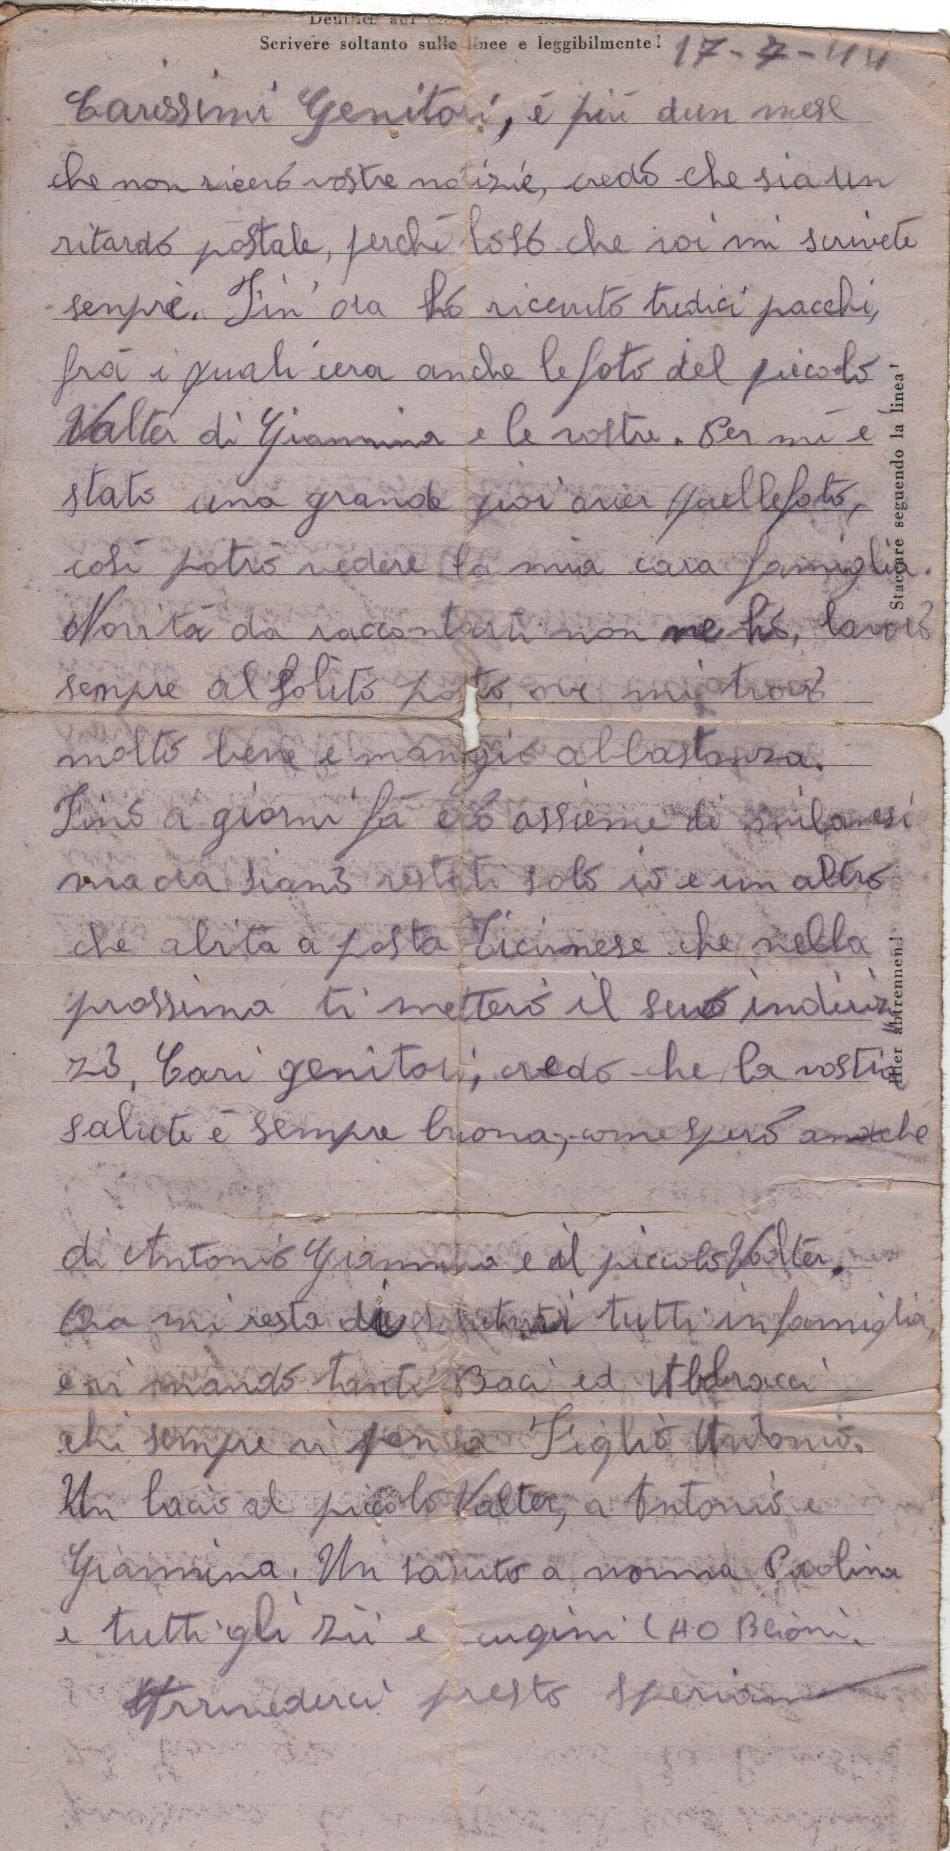 Deutlich auf
Scrivere soltanto sulle linee e leggibilmente!
17-7-44
Carissimi Genitori, é più dun mese
che non ricevo vostre notizie, credo che sia un
ritardo postale, perché loso che voi mi scrivete
sempre. Fin' ora hó ricevuto tredici pacchi,
frá i quali cera anche le foto del piccolo
Valter di Giannina e le vostre. Per mé é
stato una grande gioi' aver quelle foto,
cosí potró vedere la mia cara famiglia.
Novitá da raccontarti non ne hó, lavoro
sempre al solito posto ove mi trovo
molto bene e mangio abbastanza.
Fino a giorni fá ero assieme di milanesi
ma ora siamo restati solo io e un altro
che abita a porta Ticinese che nella
prossima ti metteró il suo indiriz
zo. Cari genitori, credo che la vostra
salute é sempre buona, come spero anche
di Antonio Giannina e il piccolo Valter.
Ora mi resta di salutarvi tutti in famiglia,
e vi mando tanti Baci ed Abbracci
chi sempre vi pensa Figlio Antonio.
Un bacio al piccolo Valter, a Antonio e
Giannina. Un saluto a nonna Paolina
e tutti gli Zii e cugini CAO Bcioni.
Arrivederci presto speriam
Staccare seguendo la linea!
Hier abtrennen!